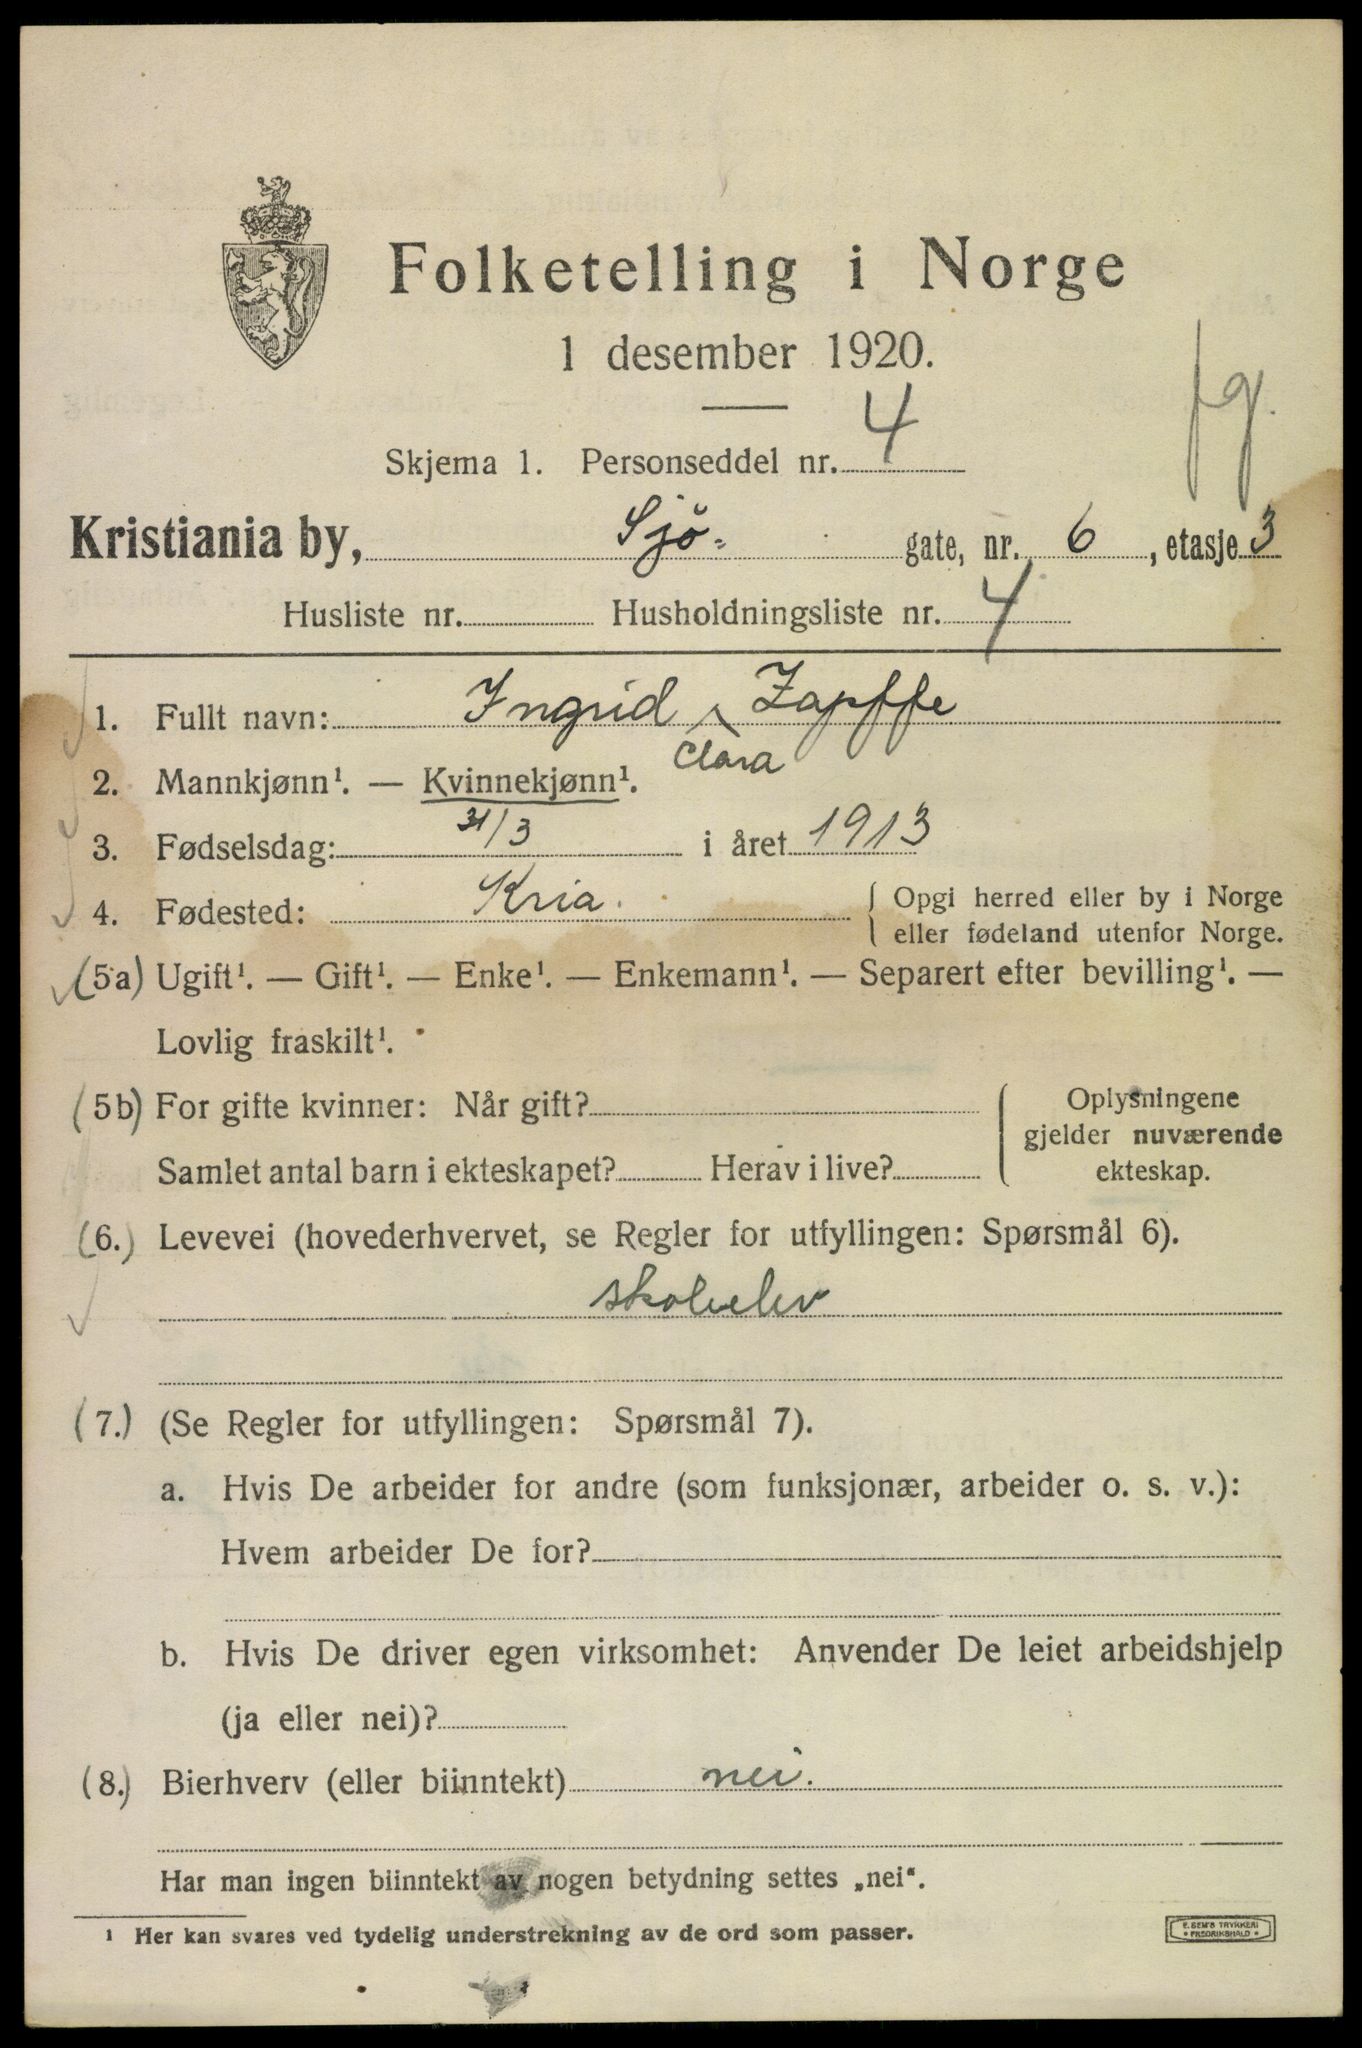 Folketelling i Norge
1 desember 1920.
fg.
Skjema 1. Personseddel nr. 4
Kristiania by, Sjö- gate, nr. 6, etasje 3
Husliste nr. Husholdningsliste nr. 4
1. Fullt navn: Ingrid Zapffe
Clara
2. Mannkjønn¹. — Kvinnekjønn¹.
3. Fødselsdag: 31/3 i året 1913
4. Fødested: Kria. { Opgi herred eller by i Norge
eller fødeland utenfor Norge.
(5a) Ugift¹. — Gift¹. — Enke¹. — Enkemann¹. — Separert efter bevilling¹. —
Lovlig fraskilt¹.
(5b) For gifte kvinner: Når gift? Oplysningene
gjelder nuværende
Samlet antal barn i ekteskapet? Herav i live? ekteskap.
(6.) Levevei (hovederhvervet, se Regler for utfyllingen: Spørsmål 6).
skoleelev
(7.) (Se Regler for utfyllingen: Spørsmål 7).
a. Hvis De arbeider for andre (som funksjonær, arbeider o. s. v.):
Hvem arbeider De for?
b. Hvis De driver egen virksomhet: Anvender De leiet arbeidshjelp
(ja eller nei)?
(8.) Bierhverv (eller biinntekt) nei.
Har man ingen biinntekt av nogen betydning settes „nei“.
¹ Her kan svares ved tydelig understrekning av de ord som passer.
E. SEM'S TRYKKERI
* FREDRIKSHALD *